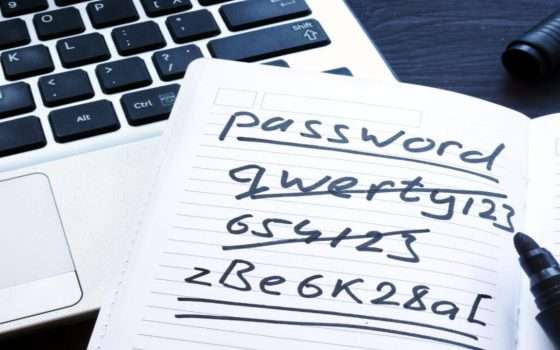 O P { [
K L : ; " '
< , > . ? / Shift
Alt Ctrl
password
qwerty123
654123
zBe6K28a[